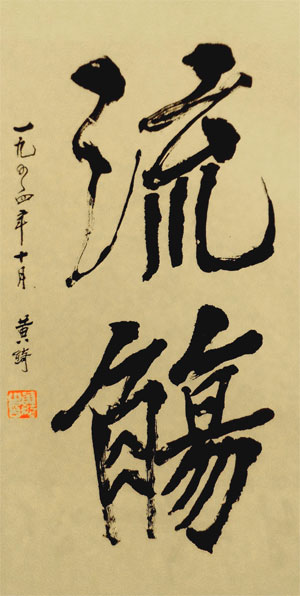 流觴
一九九四年十月 黄綺